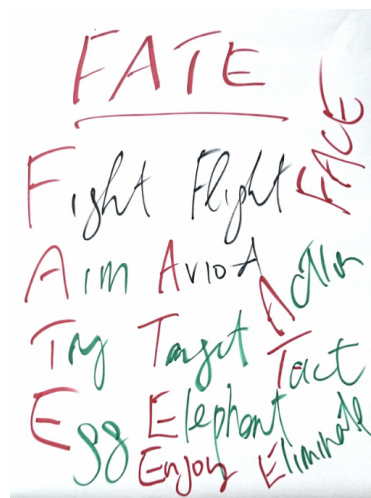 FATE
FACE
Fight Flight
Aim Aviod Action
Try Target Tact
Egg Elephant
Enjoy Eliminate